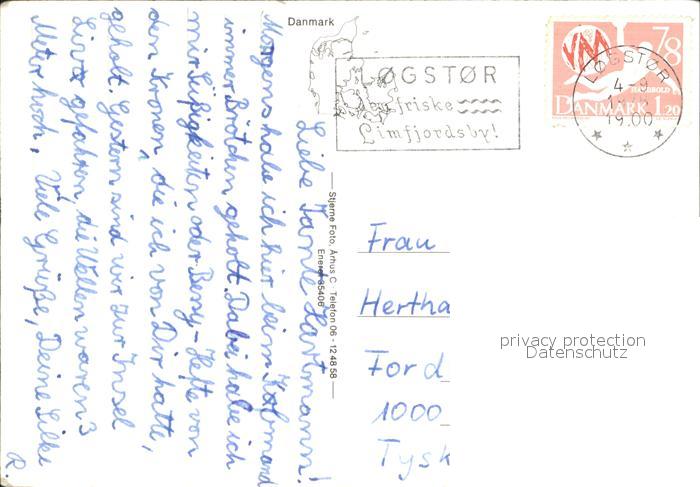 Danmark
LØGSTØR
den friske
Limfjordsby!
VM
78
HÅNDBOLD
DANMARK 1.20
LØGSTØR
4-9
19.00
Liebe Tante Hartmann!
Morgens habe ich hier beim Købmand
immer Brötchen geholt. Dabei habe ich
mir Süßigkeiten oder Bessy-Hefte von
den Kronen, die ich von Dir hatte,
geholt. Gestern sind wir zur Insel
Livø gefahren, die Wellen waren 3
Meter hoch, Viele Grüße, Deine Silke
R.
Stjerne Foto, Århus C - Telefon 06 - 12 48 58
Eneret 35406
Frau
Hertha
Ford
1000
Tysk
privacy protection
Datenschutz